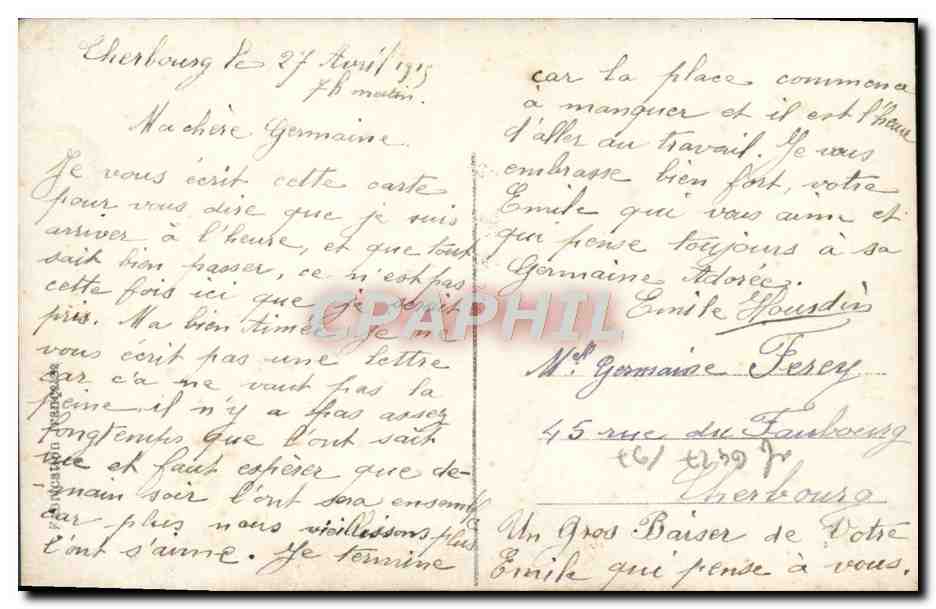 Cherbourg le 27 Avril 1915
7h matin.
Ma chère Germaine.
Je vous écrit cette carte
pour vous dire que je suis
arriver à l'heure, et que tout
sait bien passer, ce n'est pas
cette fois ici que je serait
pris. Ma bien Aimée je ne
vous écrit pas une lettre
car c'a ne vaut pas la
peine il n'y a pas assez
longtemps que l'ont sait
vue et faut espèrer que de-
main soir l'ont sera ensemble
car plus nous vieillissons plus
l'ont s'aime. Je termine
car la place commence
à manquer et il est l'heure
d'aller au travail. Je vous
embrasse bien fort, votre
Emile qui vous aime et
qui pense toujours à sa
Germaine Adorée.
Emile Housdin
Melle Germaine Ferey
45 rue du Faubourg
Cherbourg
Un Gros Baiser de Votre
Emile qui pense à vous.
Fabrication Française
CPAPHIL